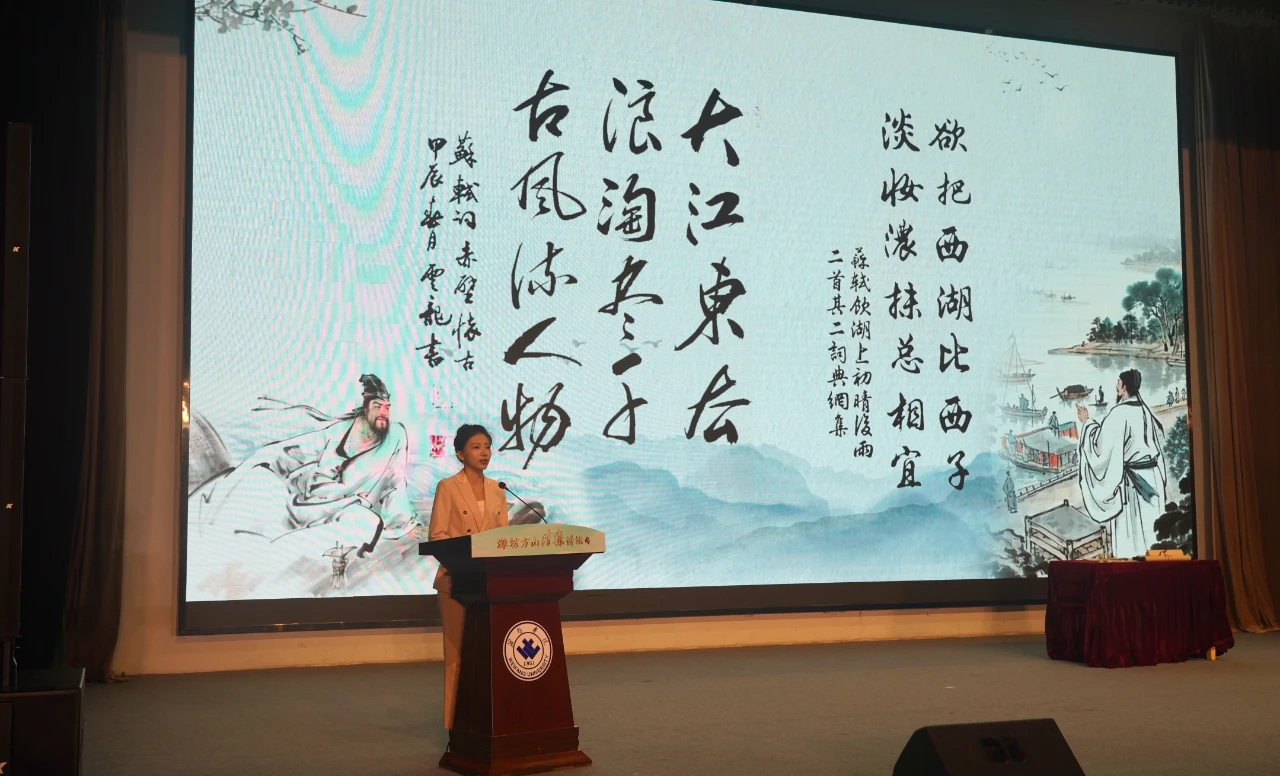 欲把西湖比西子
淡妆濃抹总相宜
蘇軾飲湖上初晴後雨
二首其二詞典網集
大江東去
浪淘尽千
古风流人物
蘇軾词赤壁懷古
甲辰春月雲龍書
潍坊方山讲坛
1951
WEIFANG UNIVERSITY